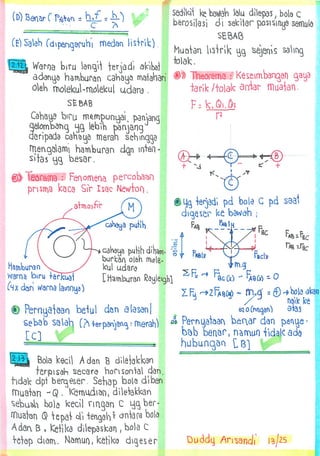 (D) Benar ( Pfoton = h.f/c = h/λ )
(E) Salah (dipengaruhi medan listrik).
2.12 Warna biru langit terjadi akibat
adanya hamburan cahaya matahari
oleh molekul-molekul udara.
SEBAB
Cahaya biru mempunyai panjang
gelombang yg lebih panjang
daripada cahaya merah sehingga
mengalami hamburan dgn inten-
sitas yg besar.
Teorema : Fenomena percobaan
prisma kaca Sir Isac Newton.
atmosfir
M
cahaya putih
cahaya putih diham-
burkan oleh mole-
kul udara
[Hamburan Rayleigh]
Hamburan
warna biru terkuat
(4x dari warna lainnya)
Pernyataan betul dan alasan/
sebab salah (λ terpanjang : merah)
[C]
2.13 Bola kecil A dan B diletakkan
terpisah secara horisontal dan
tidak dpt bergeser. Setiap bola diberi
muatan -Q. Kemudian, diletakkan
sebuah bola kecil ringan C yg ber-
muatan Q tepat di tengah² antara bola
A dan B. Ketika dilepaskan, bola C
tetap diam. Namun, ketika digeser
sedikit ke bawah lalu dilepas, bola C
berosilasi di sekitar posisinya semula
SEBAB
Muatan listrik yg sejenis saling
tolak.
Theorema : Keseimbangan gaya
tarik/tolak antar muatan.
F = k.Q₁.Q₂
r²
A C B
C
Yg terjadi pd bola C pd saat
digeser ke bawah ;
m.g
ΣFy → 2FAB(y) - m.g = + → bola akan
naik ke
atas
Pernyataan benar dan penye-
bab benar, namun tidak ada
hubungan [B]
Duddy Arisandi 13/25